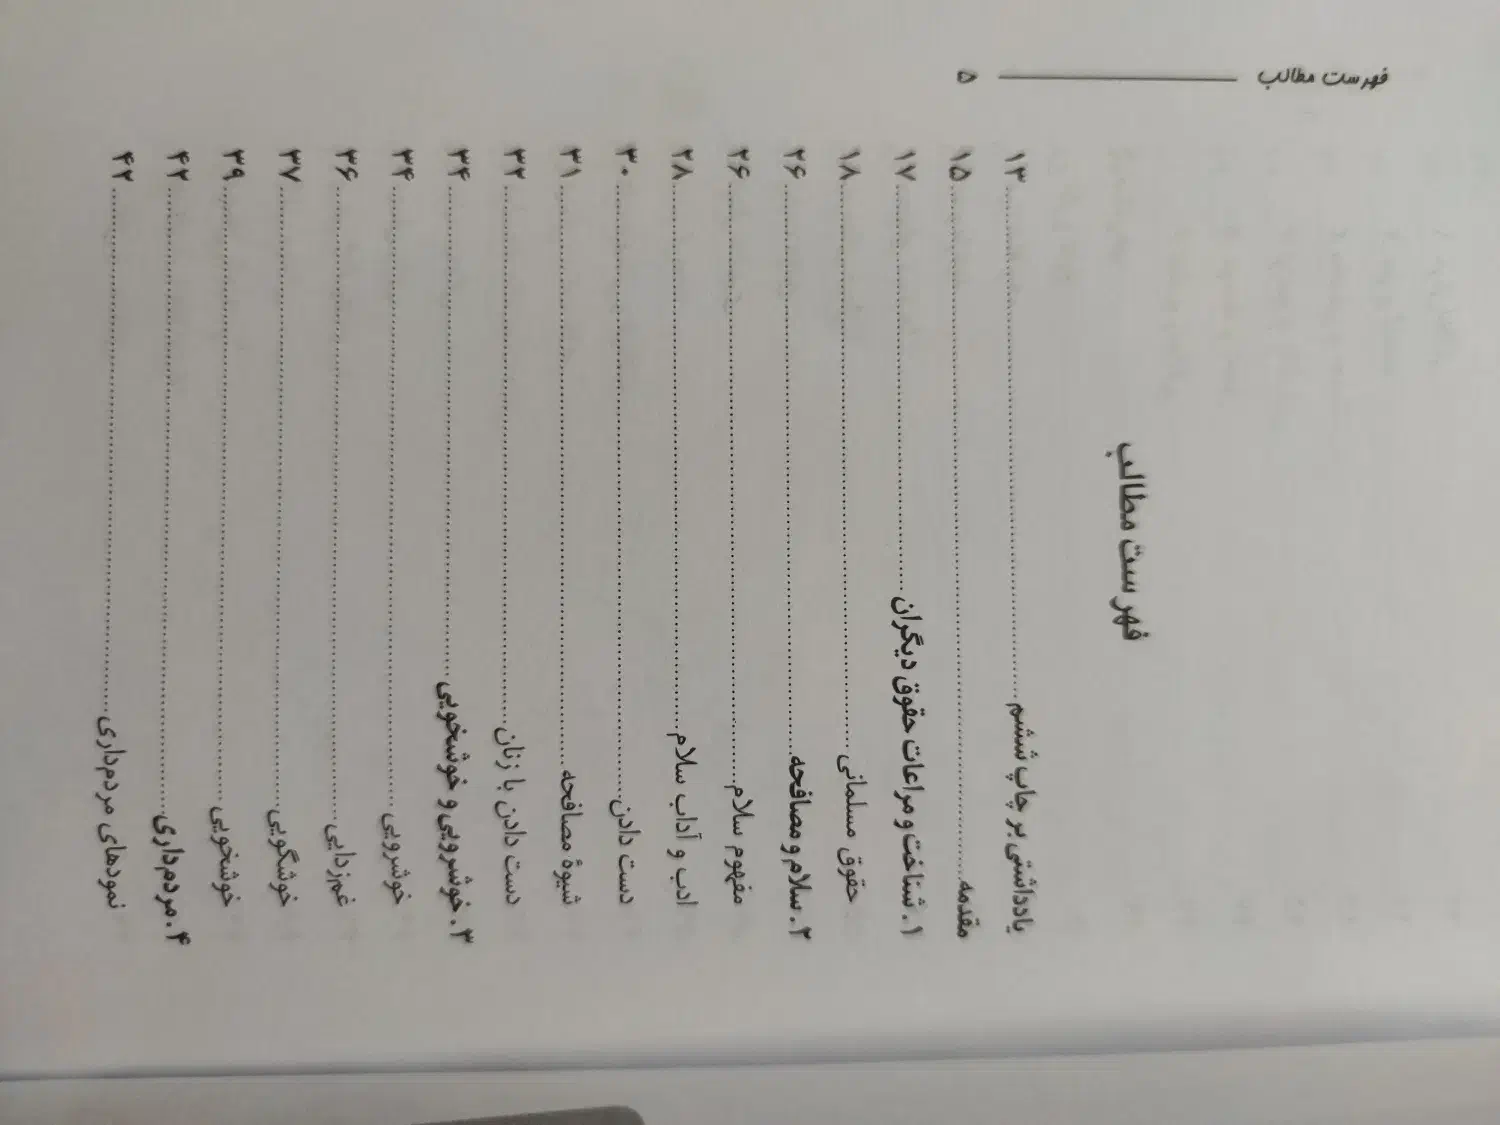 فهرست مطالب ۵
فهرست مطالب
یادداشتی بر چاپ ششم ۱۳
مقدمه ۱۵
۱. شناخت و مراعات حقوق دیگران ۱۷
حقوق مسلمانی ۱۸
۲. سلام و مصافحه ۲۶
مفهوم سلام ۲۶
ادب و آداب سلام ۲۸
دست دادن ۳۰
شیوۀ مصافحه ۳۱
دست دادن با زنان ۳۲
۳. خوشرویی و خوشخویی ۳۴
خوشرویی ۳۴
غم‌زدایی ۳۶
خوشگویی ۳۷
خوشخویی ۳۹
۴. مردم‌داری ۴۲
نمودهای مردم‌داری ۴۲